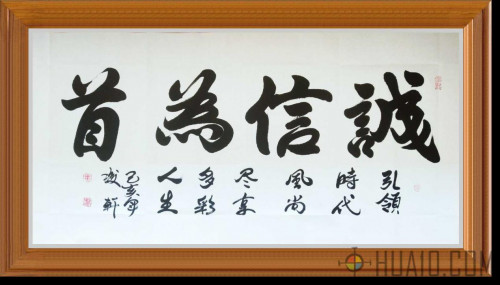 誠信為首
引領
時代
風尚
尽享
多彩
人生
HUAIO.COM